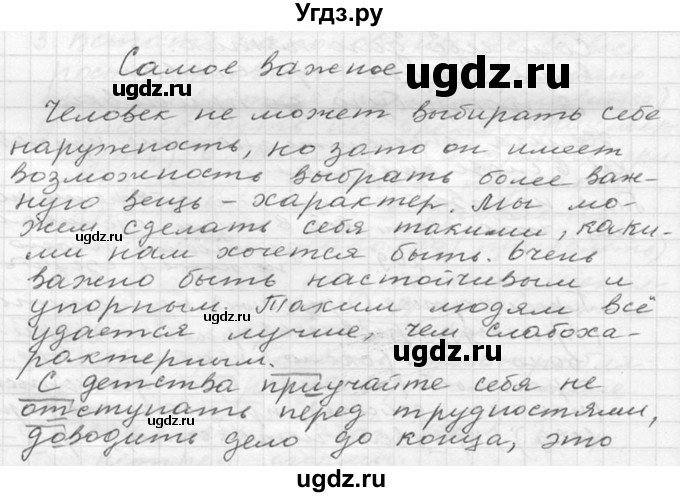 Угдз.ру
Самое важное
ugdz.ru
ugdz.ru
Человек не может выбирать себе
наружность, но зато он имеет
возможность выбрать более важ-
ную вещь – характер. Мы мо-
жем сделать себя такими, каки-
ugdz.ru
ми нам хочется быть. Очень
важно быть настойчивым и
упорным. Таким людям всё
ugdz.ru
удается лучше, чем слабоха-
ugdz.ru
рактерным.
С детства приучайте себя не
отступать перед трудностями,
ugdz.ru
доводить дело до конца, это
ugdz.ru